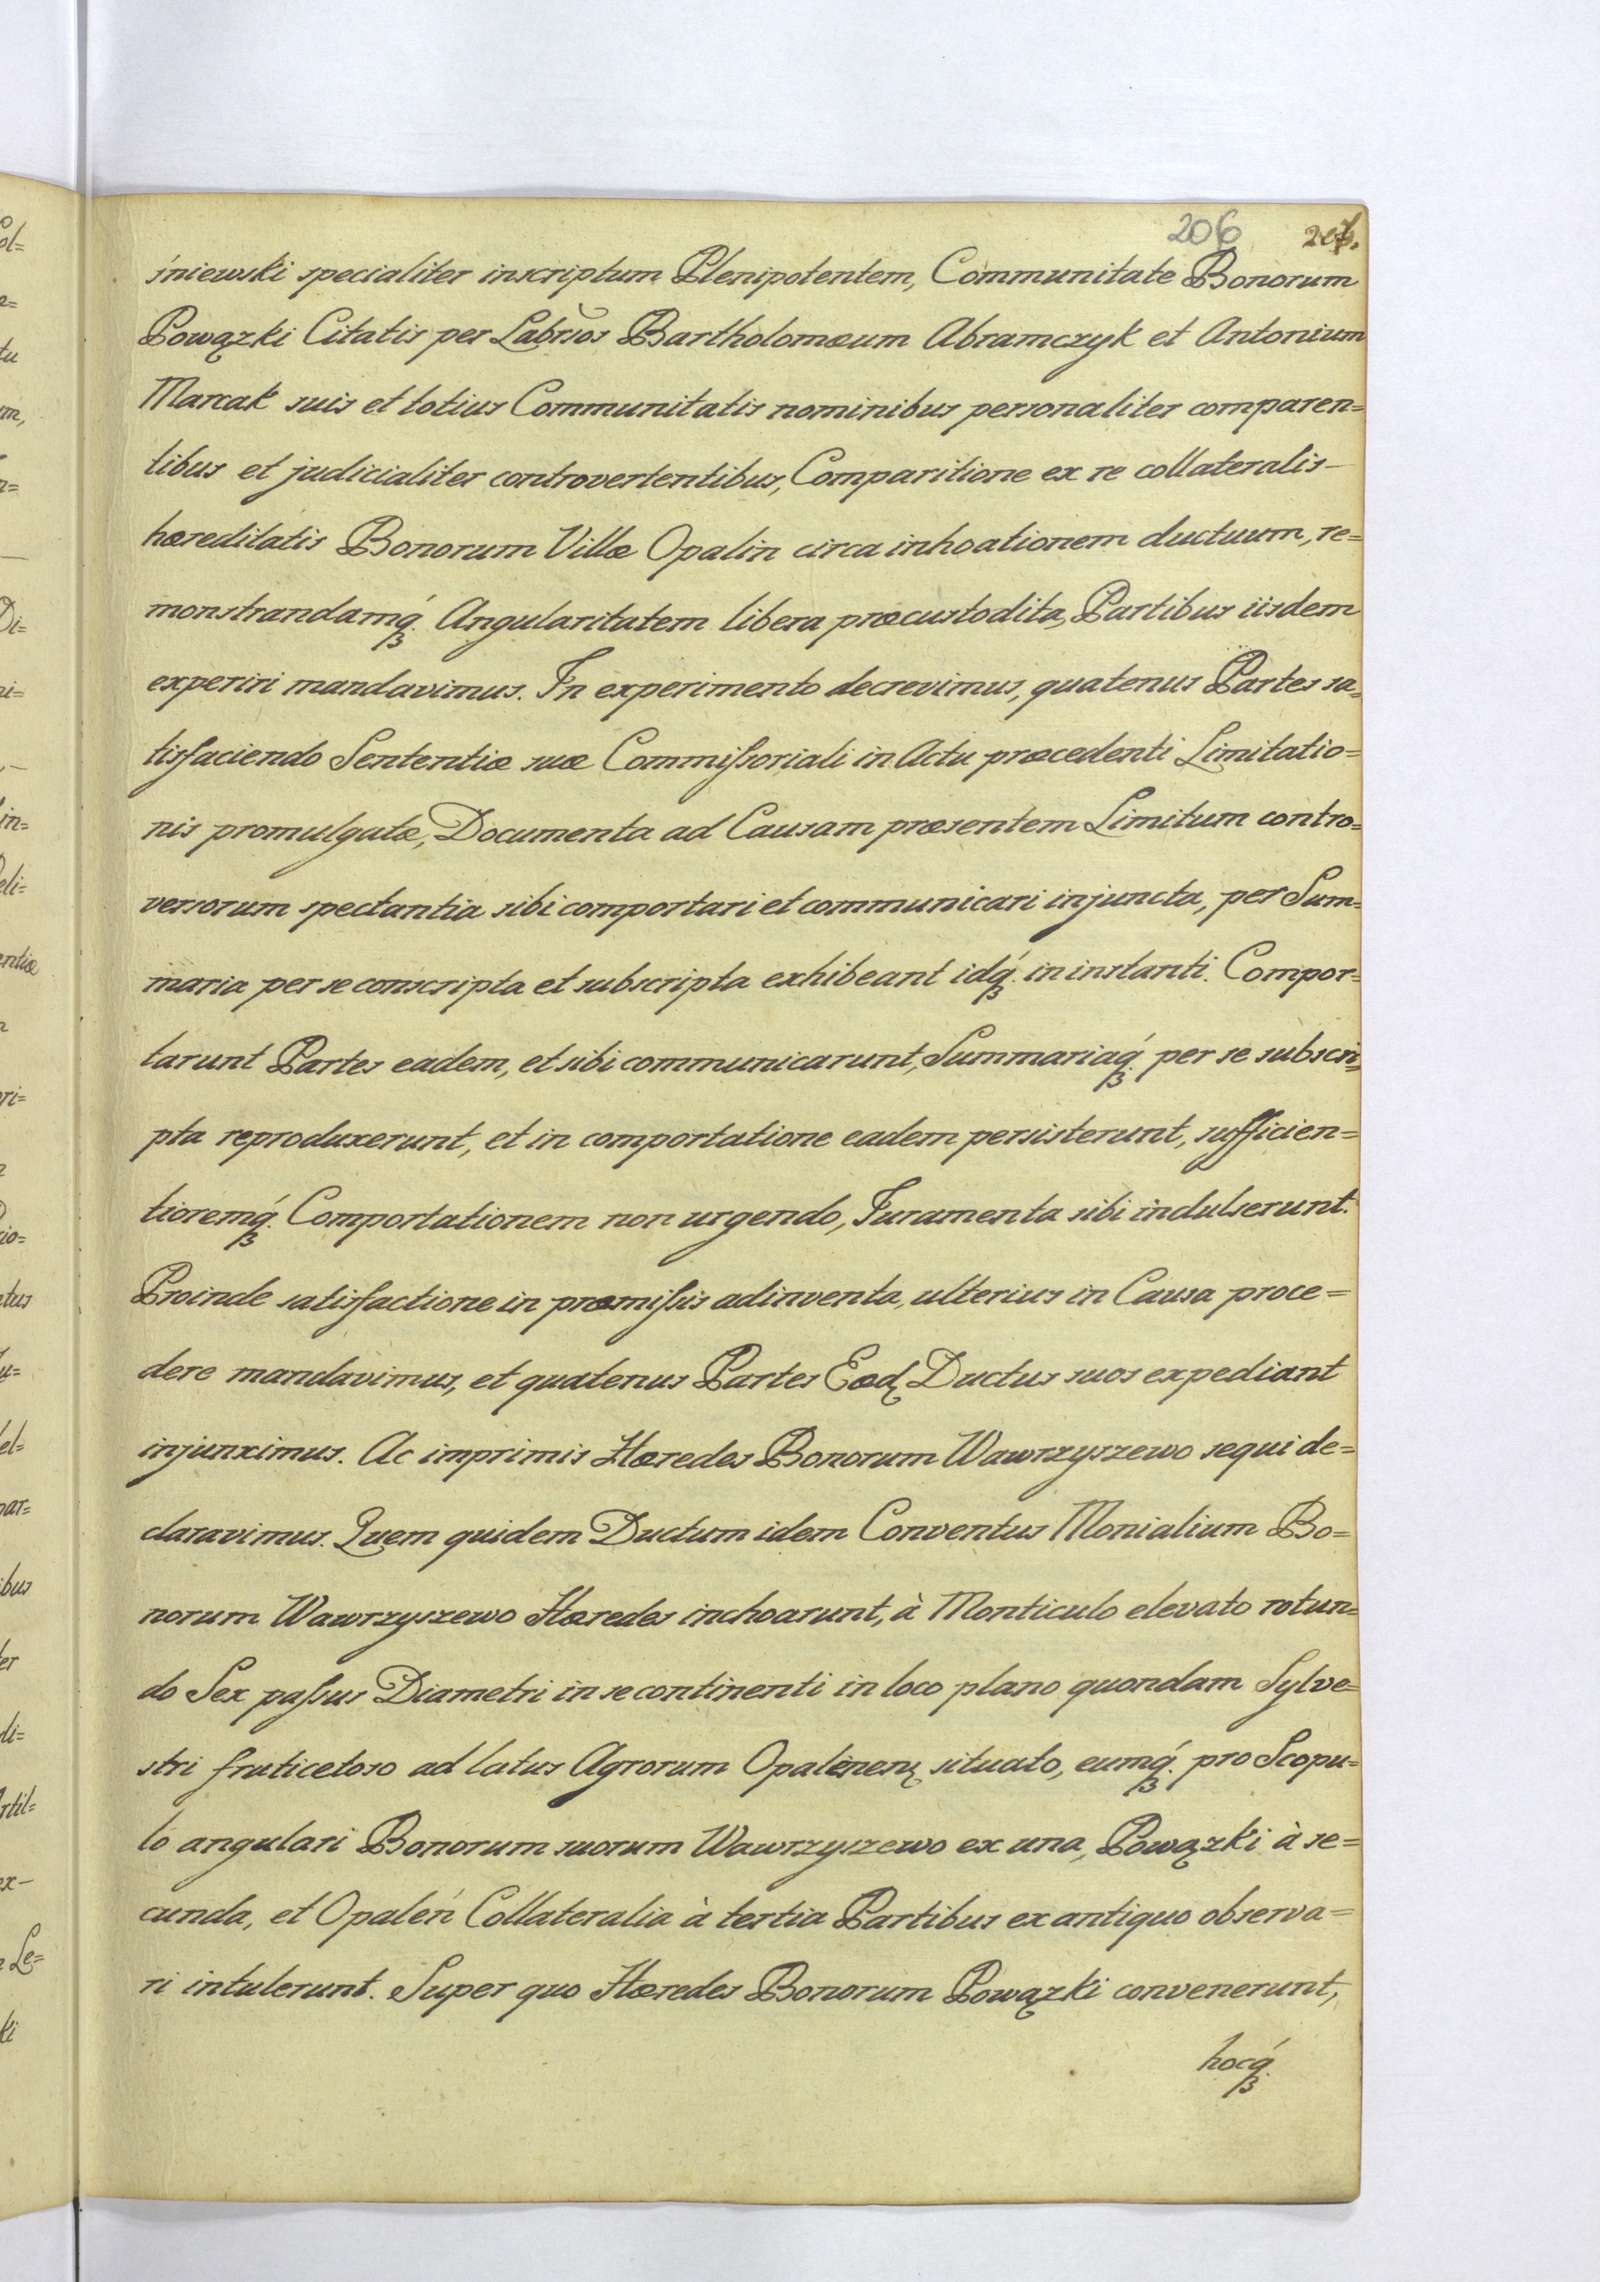 206 207.
śniewski specialiter inscriptum Plenipotentem, Communitate Bonorum
Powązki Citatis per Labrsos Bartholomæum Abramczyk et Antonium
Marcak suis et totius Communitatis nominibus personaliter comparen=
tibus et judicialiter controvertentibus, Comparitione ex re collateralis
hæreditatis Bonorum Villæ Opalin circa inhoationem ductuum, re=
monstrandamq́ꝫ. Angularitatem libera præcustodita, Partibus iisdem
experiri mandavimus. In experimento decrevimus, quatenus Partes sa=
tisfaciendo Sententiæ suæ Commiſsoriali in Actu præcedenti Limitatio=
nis promulgatæ, Documenta ad Causam præsentem Limitum contro=
versorum spectantia sibi comportari et communicari injuncta, per Sum=
maria per se conscripta et subscripta exhibeant idq́ꝫ. in instanti. Compor=
tarunt Partes eadem, et sibi communicarunt, Summariaq́ꝫ. per se subscri=
pta reproduxerunt, et in comportatione eadem persisterunt, sufficien=
tioremq́ꝫ. Comportationem non urgendo, Juramenta sibi indulserunt.
Proinde satisfactione in præmiſsis adinventa, ulterius in Causa proce=
dere mandavimus, et quatenus Partes Eæd. Ductus suos expediant
injunximus. Ac imprimis Hæredes Bonorum Wawrzyszewo sequi de=
claravimus. Quem quidem Ductum idem Conventus Monialium Bo=
norum Wawrzyszewo Hæredes inchoarunt, à Monticulo elevato rotun=
do Sex paſsus Diametri in se continenti in loco plano quondam Sylve=
stri fruticetoso ad latus Agrorum Opalènen. situato, eumq́ꝫ. pro Scopu=
lo angulari Bonorum suorum Wawrzyszewo ex una, Powązki à se=
cunda, et Opaleń Collateralia à tertia Partibus ex antiquo observa=
ri intulerunt. Super quo Hæredes Bonorum Powązki convenerunt,
hocq́ꝫ.